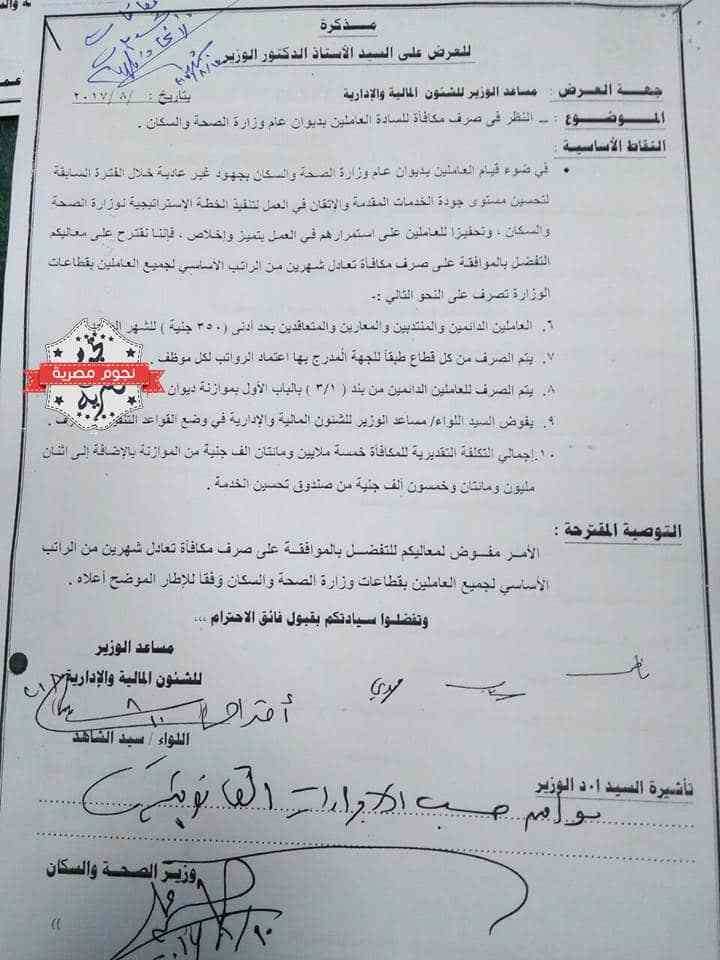 مذكرة
للعرض على السيد الأستاذ الدكتور الوزير
جهة العرض : مساعد الوزير للشئون المالية والإدارية بتاريخ : /٨/ ٢٠١٧
الموضوع : ــ النظر فى صرف مكافأة للسادة العاملين بديوان عام وزارة الصحة والسكان .
النقاط الأساسية :
• في ضوء قيام العاملين بديوان عام وزارة الصحة والسكان بجهود غير عادية خلال الفترة السابقة
لتحسين مستوى جودة الخدمات المقدمة والإتقان في العمل لتنفيذ الخطة الإستراتيجية لوزارة الصحة
والسكان ، وتحفيزا للعاملين على استمرارهم في العمل بتميز وإخلاص ، فإننا نقترح على معاليكم
التفضل بالموافقة على صرف مكافأة تعادل شهرين من الراتب الأساسي لجميع العاملين بقطاعات
الوزارة تصرف على النحو التالي :-
٦. العاملين الدائمين والمنتدبين والمعارين والمتعاقدين بحد أدنى (٣٥٠ جنية ) للشهر
٧. يتم الصرف من كل قطاع طبقاً للجهة المدرج بها اعتماد الرواتب لكل موظف .
٨. يتم الصرف للعاملين الدائمين من بند ( ٣/١ ) بالباب الأول بموازنة ديوان
٩. يفوض السيد اللواء/ مساعد الوزير للشئون المالية والإدارية في وضع القواعد
١٠. إجمالي التكلفة التقديرية للمكافأة خمسة ملايين ومائتان الف جنية من الموازنة بالإضافة إلى اثنان
مليون ومائتان وخمسون ألف جنية من صندوق تحسين الخدمة .
نجوم مصرية
التوصية المقترحة :
الأمر مفوض لمعاليكم للتفضل بالموافقة على صرف مكافأة تعادل شهرين من الراتب
الأساسي لجميع العاملين بقطاعات وزارة الصحة والسكان وفقا للإطار الموضح أعلاه .
وتفضلوا سيادتكم بقبول فائق الاحترام ,,,
مساعد الوزير
للشئون المالية والإدارية
اللواء / سيد الشاهد
تأشيرة السيد ا.د الوزير
حسب الإجراءات القانونية
وزير الصحة والسكان
((